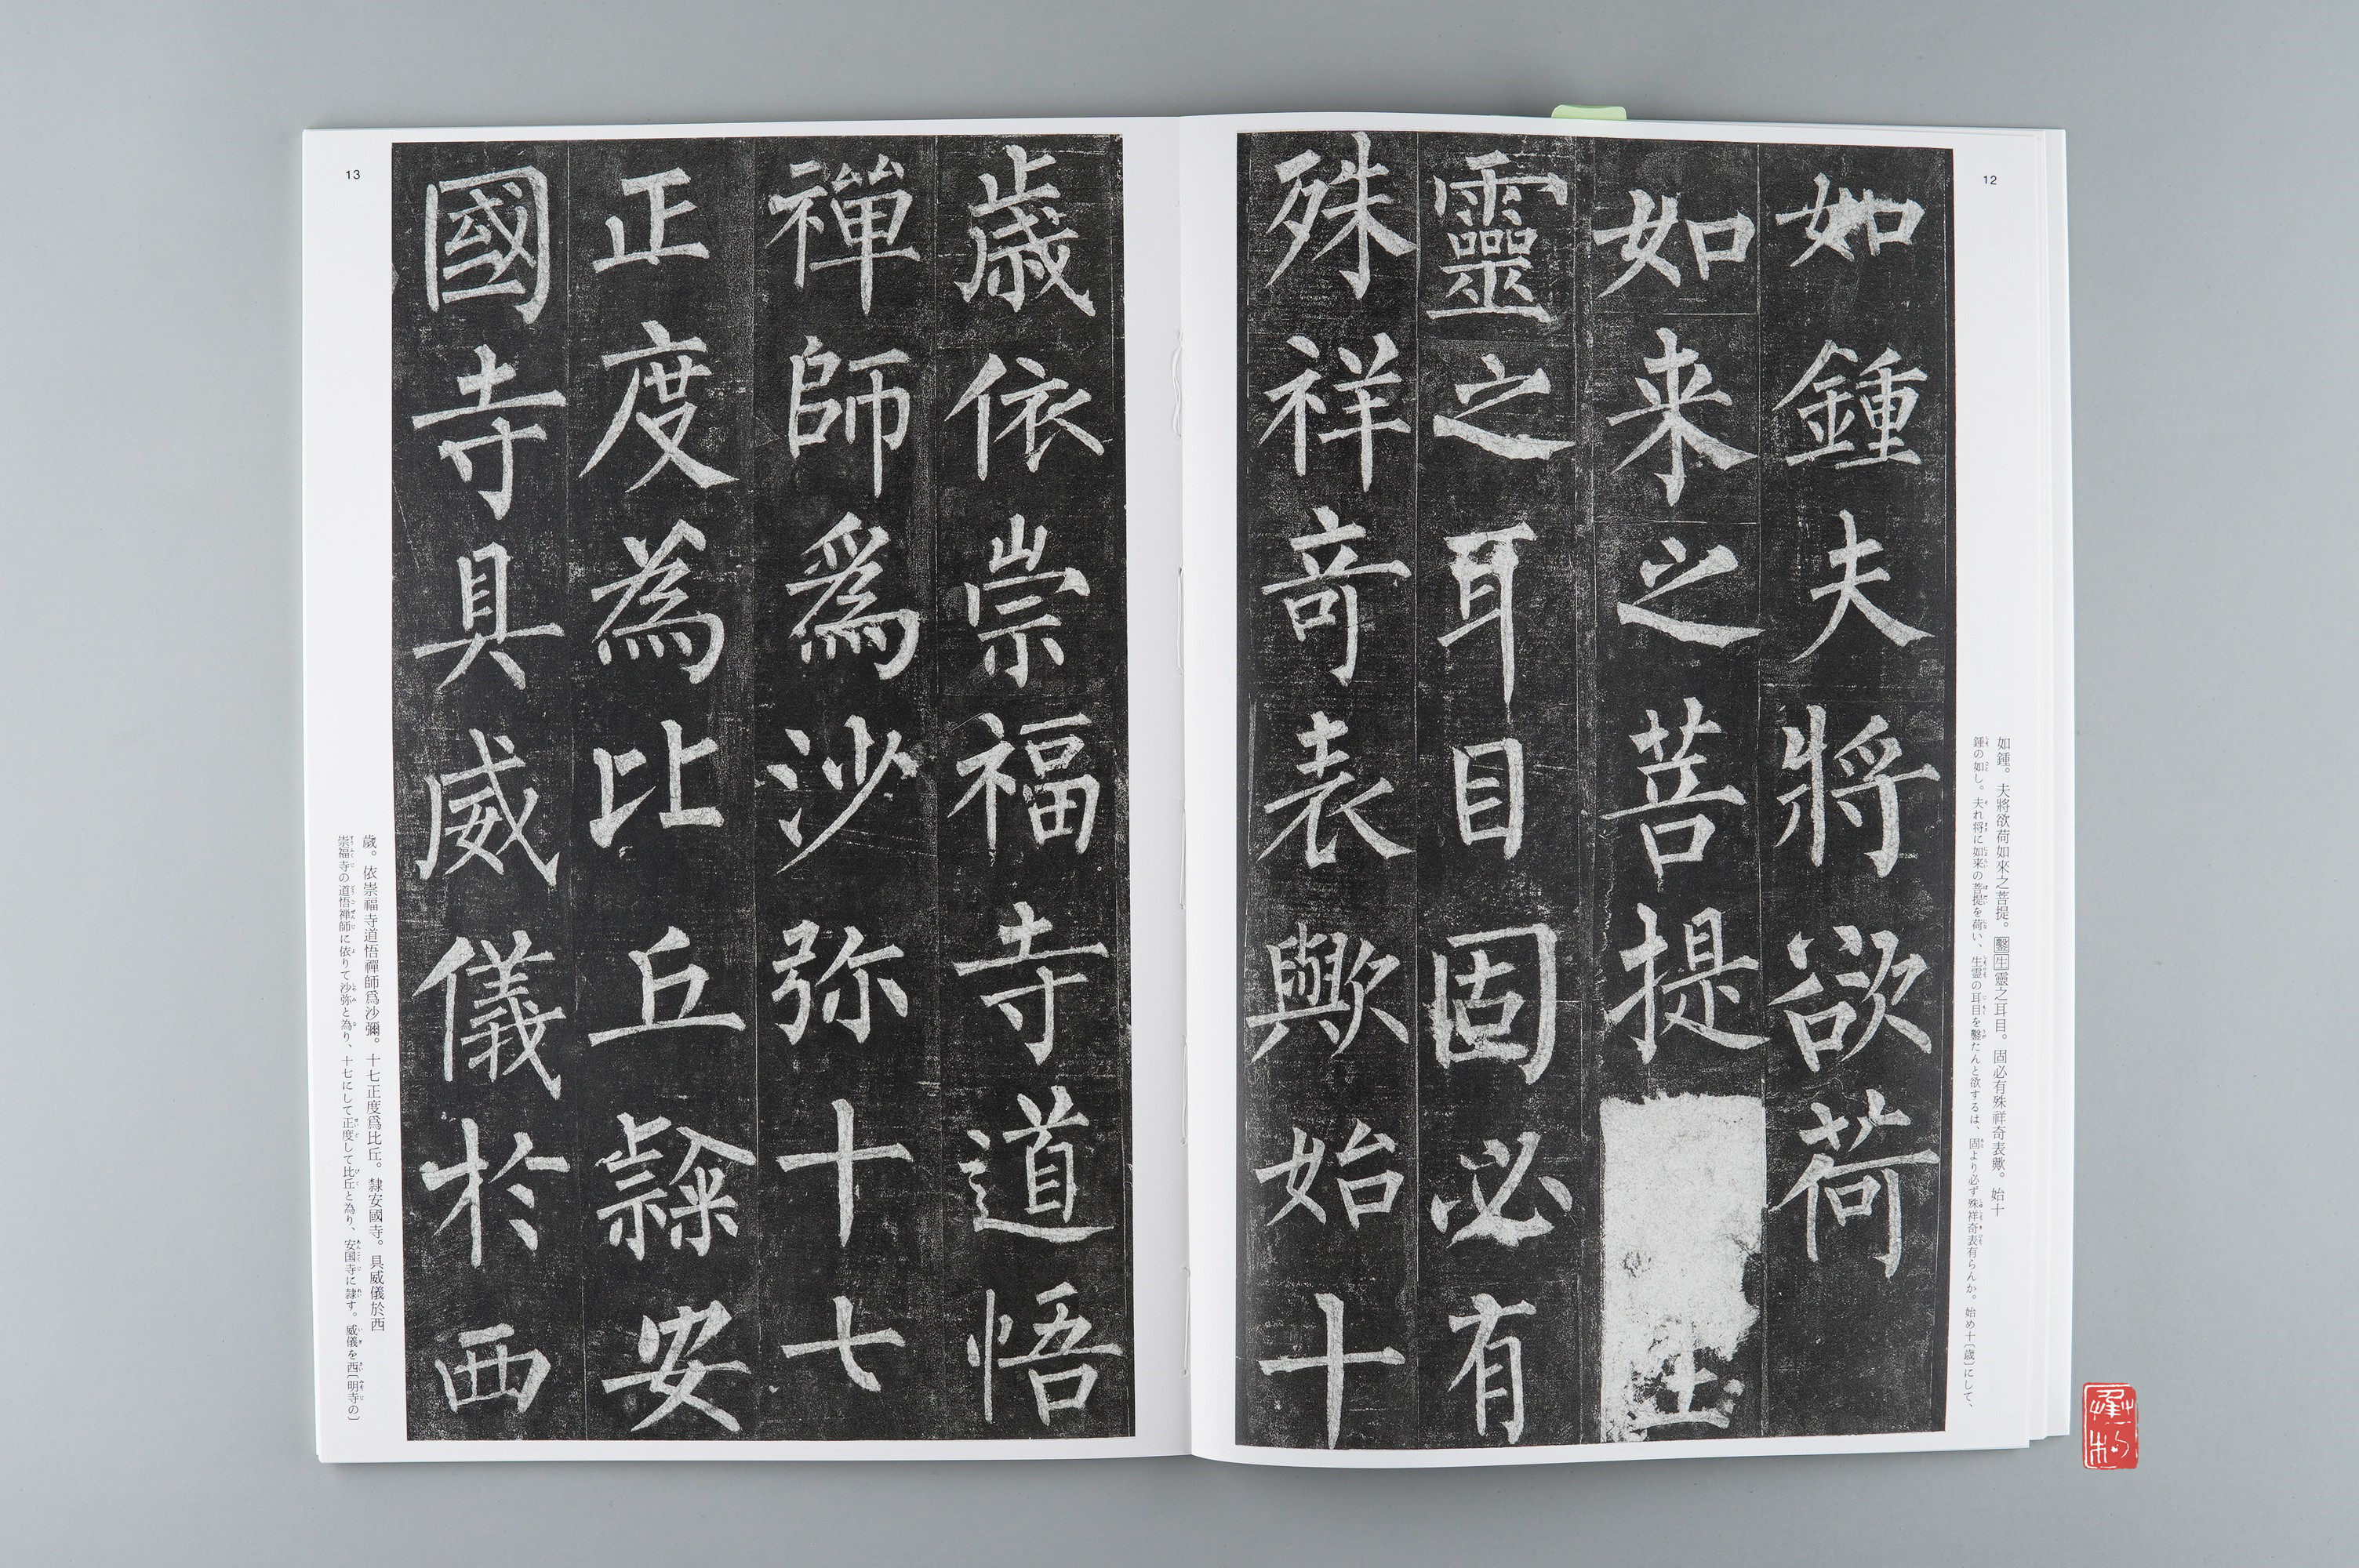 12
如鍾夫將欲荷
如来之菩提生
靈之耳目固必有
殊祥竒表歟始十
如鍾。夫將欲荷如來之菩提。鑿生靈之耳目。固必有殊祥奇表歟。始十
鍾の如し。夫れ将に如来の菩提を荷い、生霊の耳目を鑿たんと欲するは、固より必ず殊祥奇表有らんか。始め十〔歳〕にして、
13
歳依崇福寺道悟
禪師爲沙弥十七
正度為比丘隸安
國寺具威儀於西
歲。依崇福寺道悟禪師爲沙彌。十七正度爲比丘。隸安國寺。具威儀於西
崇福寺の道悟禅師に依りて沙弥と為り、十七にして正度して比丘と為り、安国寺に隸す。威儀を西〔明寺の〕